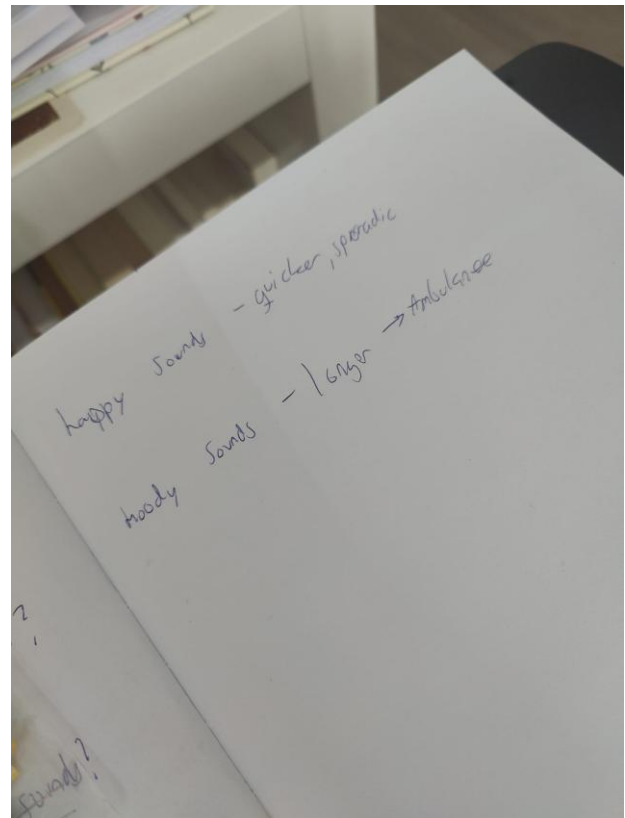 happy sounds - quicker, sporadic
moody sounds - longer → Ambulance
?
sounds?